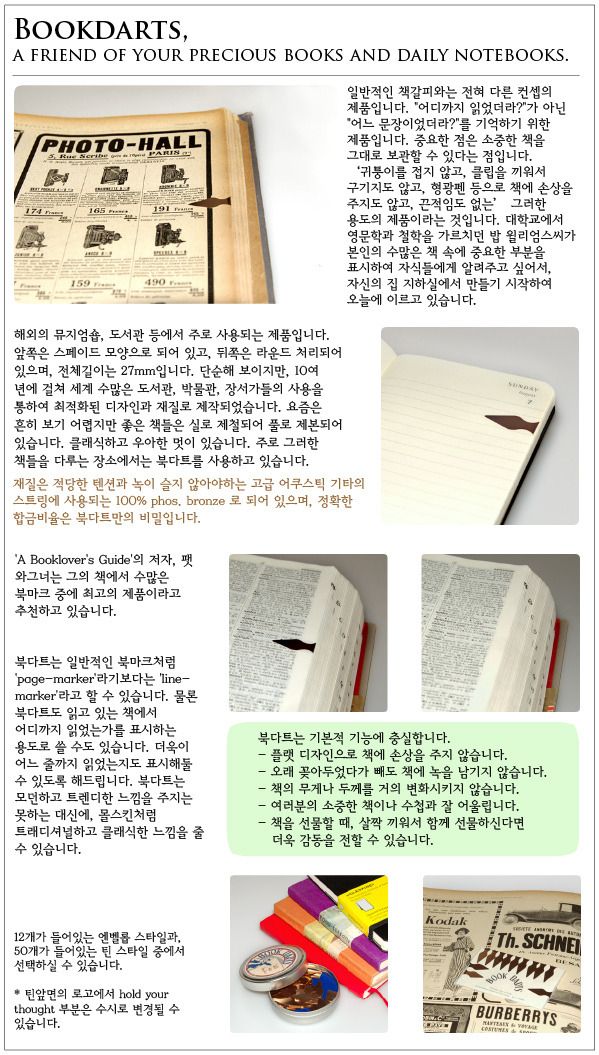 BOOKDARTS,
A FRIEND OF YOUR PRECIOUS BOOKS AND DAILY NOTEBOOKS.
일반적인 책갈피와는 전혀 다른 컨셉의
제품입니다. "어디까지 읽었더라?"가 아닌
"어느 문장이었더라?"를 기억하기 위한
제품입니다. 중요한 점은 소중한 책을
그대로 보관할 수 있다는 점입니다.
‘귀퉁이를 접지 않고, 클립을 끼워서
구기지도 않고, 형광펜 등으로 책에 손상을
주지도 않고, 끈적임도 없는’ 그러한
용도의 제품이라는 것입니다. 대학교에서
영문학과 철학을 가르치던 밥 윌리엄스씨가
본인의 수많은 책 속에 중요한 부분을
표시하여 자식들에게 알려주고 싶어서,
자신의 집 지하실에서 만들기 시작하여
오늘에 이르고 있습니다.
PHOTO-HALL
5, Rue Scribe PARIS
174 Francs
165 Francs
191 Francs
159 Francs
490 Francs
해외의 뮤지엄숍, 도서관 등에서 주로 사용되는 제품입니다.
앞쪽은 스페이드 모양으로 되어 있고, 뒤쪽은 라운드 처리되어
있으며, 전체길이는 27mm입니다. 단순해 보이지만, 10여
년에 걸쳐 세계 수많은 도서관, 박물관, 장서가들의 사용을
통하여 최적화된 디자인과 재질로 제작되었습니다. 요즘은
흔히 보기 어렵지만 좋은 책들은 실로 제철되어 풀로 제본되어
있습니다. 클래식하고 우아한 멋이 있습니다. 주로 그러한
책들을 다루는 장소에서는 북다트를 사용하고 있습니다.
재질은 적당한 텐션과 녹이 슬지 않아야하는 고급 어쿠스틱 기타의
스트링에 사용되는 100% phos. bronze 로 되어 있으며, 정확한
합금비율은 북다트만의 비밀입니다.
SUNDAY
August
7
'A Booklover's Guide'의 저자, 팻
와그너는 그의 책에서 수많은
북마크 중에 최고의 제품이라고
추천하고 있습니다.
북다트는 일반적인 북마크처럼
'page-marker'라기보다는 'line-
marker'라고 할 수 있습니다. 물론
북다트도 읽고 있는 책에서
어디까지 읽었는가를 표시하는
용도로 쓸 수도 있습니다. 더욱이
어느 줄까지 읽었는지도 표시해둘
수 있도록 해드립니다. 북다트는
모던하고 트렌디한 느낌을 주지는
못하는 대신에, 몰스킨처럼
트래디셔널하고 클래식한 느낌을 줄
수 있습니다.
북다트는 기본적 기능에 충실합니다.
- 플랫 디자인으로 책에 손상을 주지 않습니다.
- 오래 꽂아두었다가 빼도 책에 녹을 남기지 않습니다.
- 책의 무게나 두께를 거의 변화시키지 않습니다.
- 여러분의 소중한 책이나 수첩과 잘 어울립니다.
- 책을 선물할 때, 살짝 끼워서 함께 선물하신다면
더욱 감동을 전할 수 있습니다.
12개가 들어있는 엔벨롭 스타일과,
50개가 들어있는 틴 스타일 중에서
선택하실 수 있습니다.
* 틴앞면의 로고에서 hold your
thought 부분은 수시로 변경될 수
있습니다.
BOOK DARTS
Kodak
SOCIÉTÉ ANONYME DES AUTOMOBILES
Th. SCHNEI
BESA
BOOK DARTS
BURBERRYS
MANTEAUX de VOYAGE
COSTUMES de SPORT